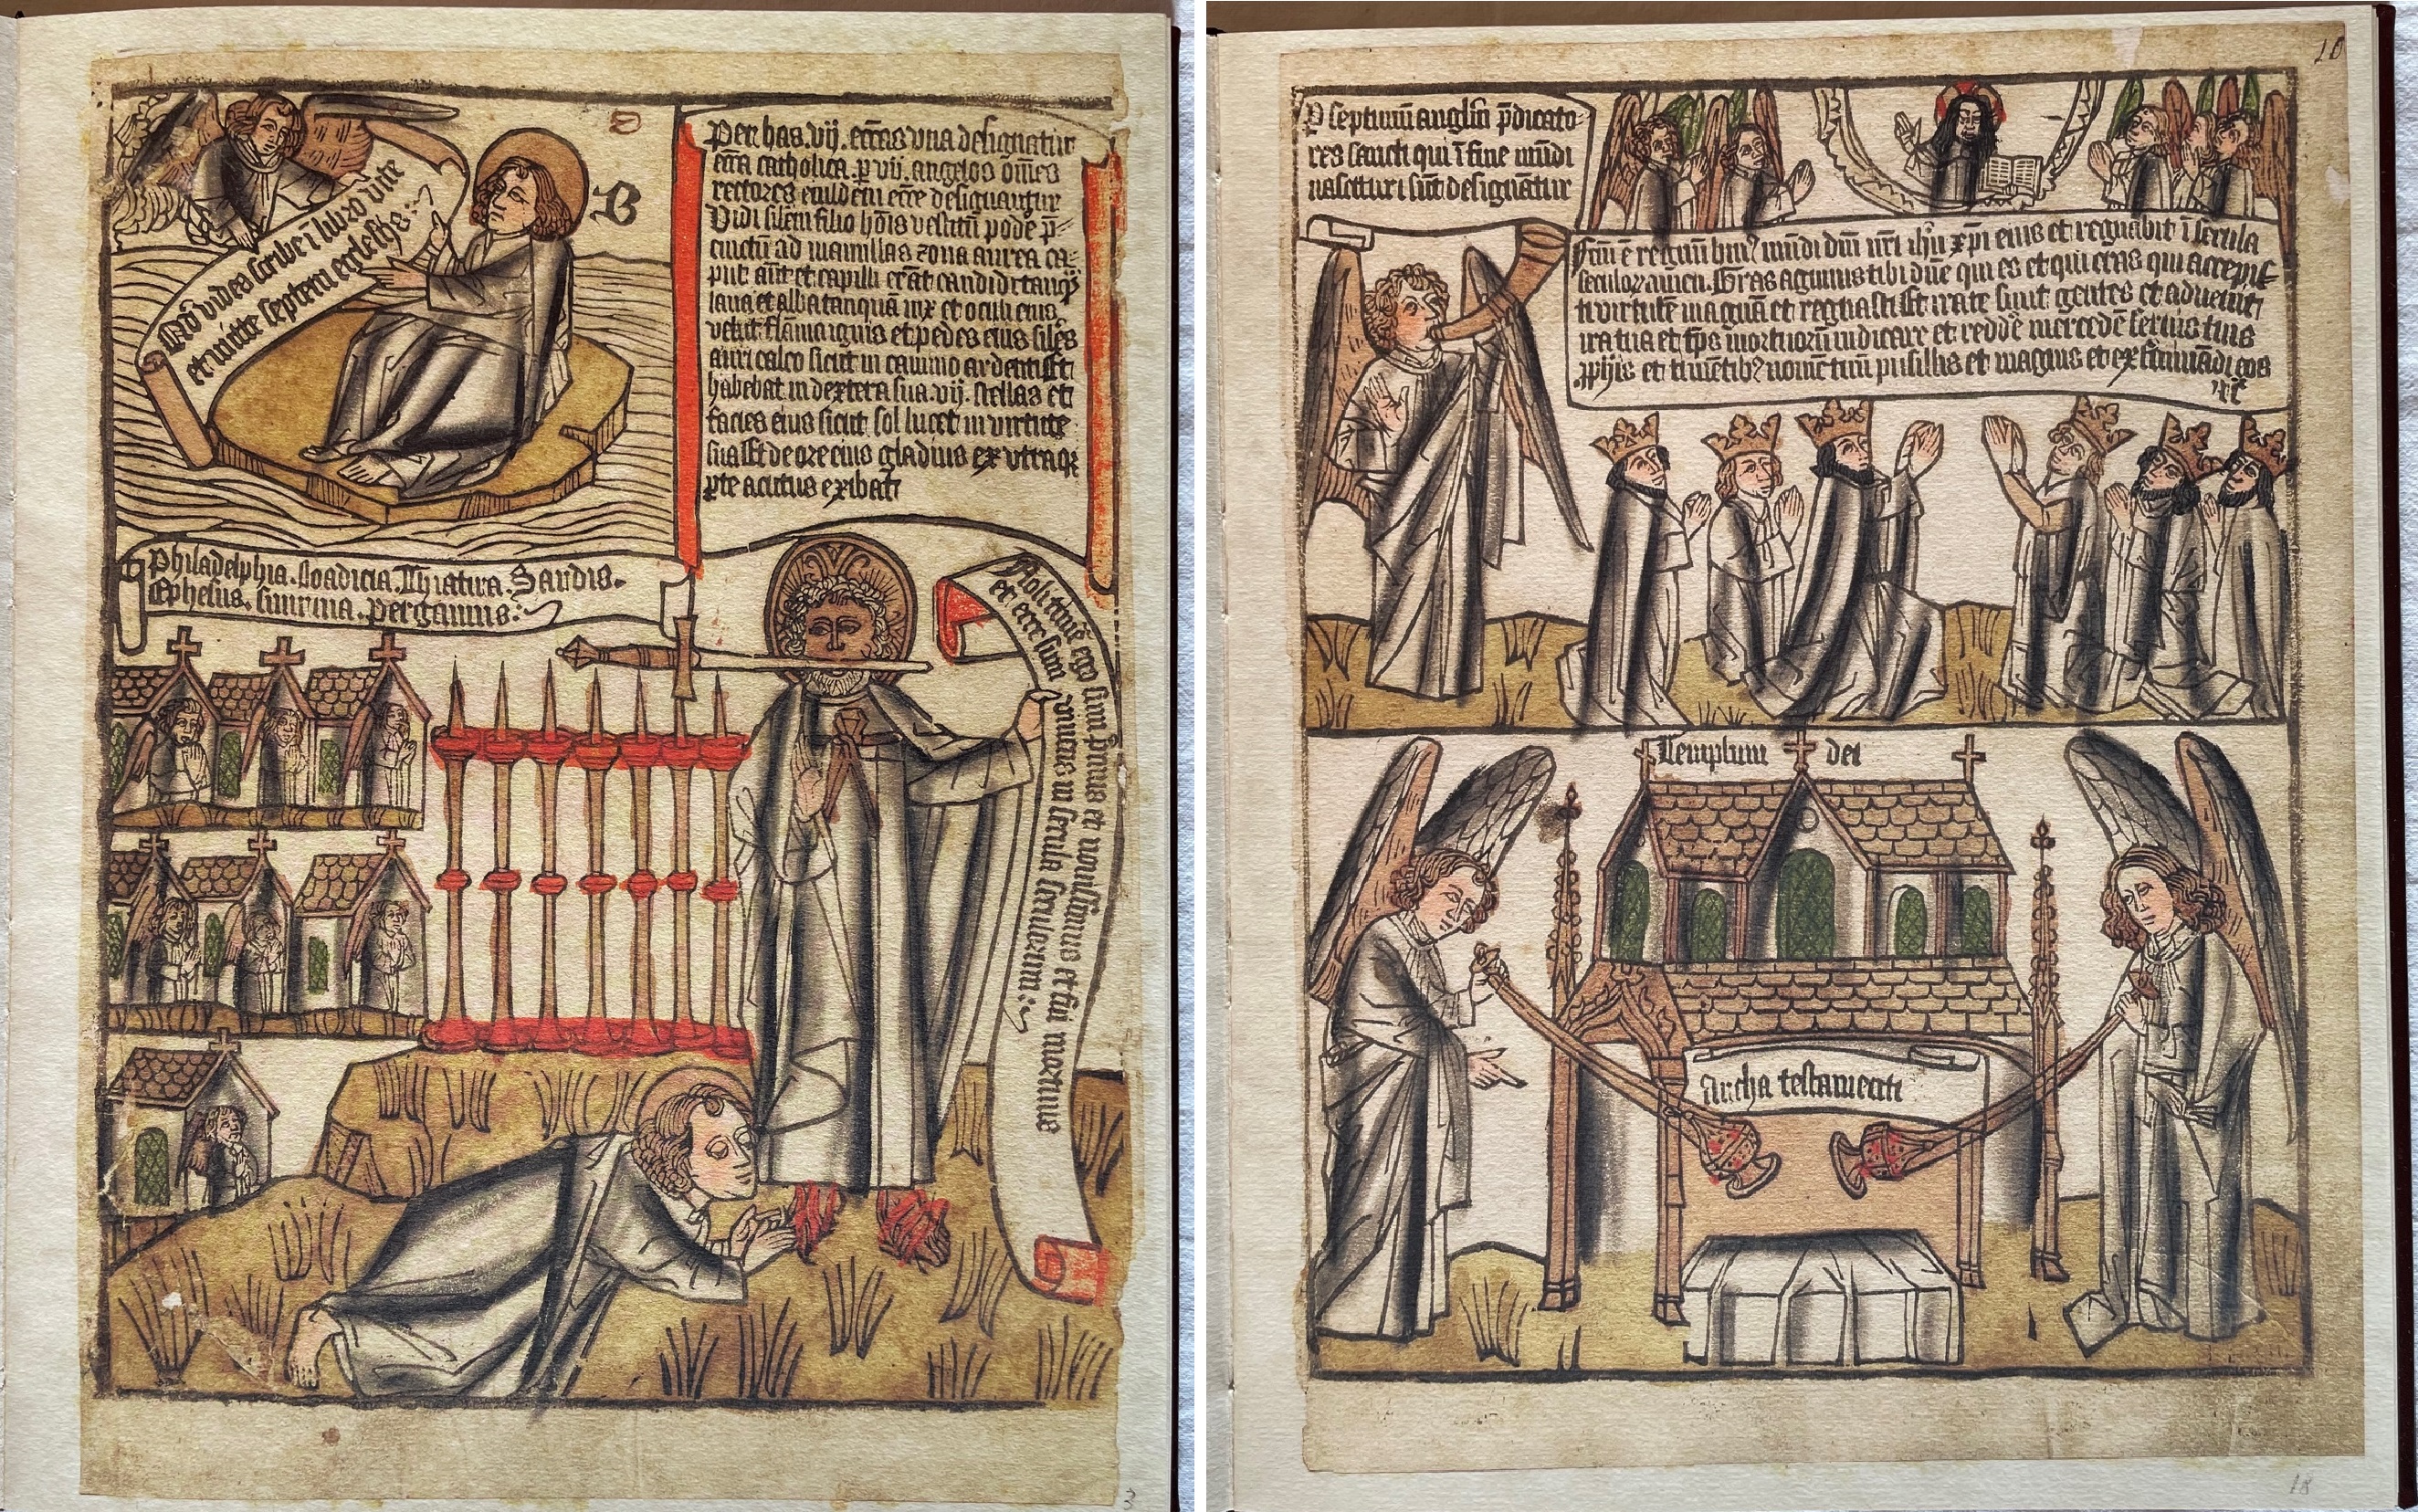 Qđ vides scribe ī libro vite
et mitte septem ecclesiis
B
Per has .vij. eccās vna designatur
ecc̄a catholica. p̱ vij. angelos om̄es
rectores eiusdem ecc̄e designantur
Vidi silem filio hōis vestitū podē p̄=
cinctū ad mamillas zona aurea ca=
put aūt et capilli erāt candidi tanq̄
lana et alba tanquā nix et oculi eius
velut flāma ignis et pedes eius siles
auri calco sicut in camino ardenti Et
habebat in dextera sua .vij. stellas et
facies eius sicut sol lucet in virtute
sua Et de ore eius gladius ex vtraqꝫ
p̱te acutus exibat
Philadelphia. Loadicia. Thiatira. Sardis.
Ephesus. smirna. Pergamus
Noli timē ego sum p̄mus et nouissimus et fui mortuus
et ecce sum viuens in secula seculorum
3
10
P̱ septimū angl'm p̄dicato=
res sancti qui ī fine mūdi
nascituri sūt designātur
Fcm̄ ē regnū huiꝰ mūdi dn̄i nr̄i ihū xp̄i eius et regnabit ī secula
seculoꝝ amen. Gras agimus tibi dn̄e qui es et qui eras qui accepis
ti virtutē magnā et regnasti Et irate sunt gentes et aduenit
ira tua et tp̄s mortuorū iudicare et reddē mercedē seruis tuis
ꝓphis et timētibꝰ nomē tuū pusillis et magnis et exterminādi eos
Templum dei
Archa testamenti
18